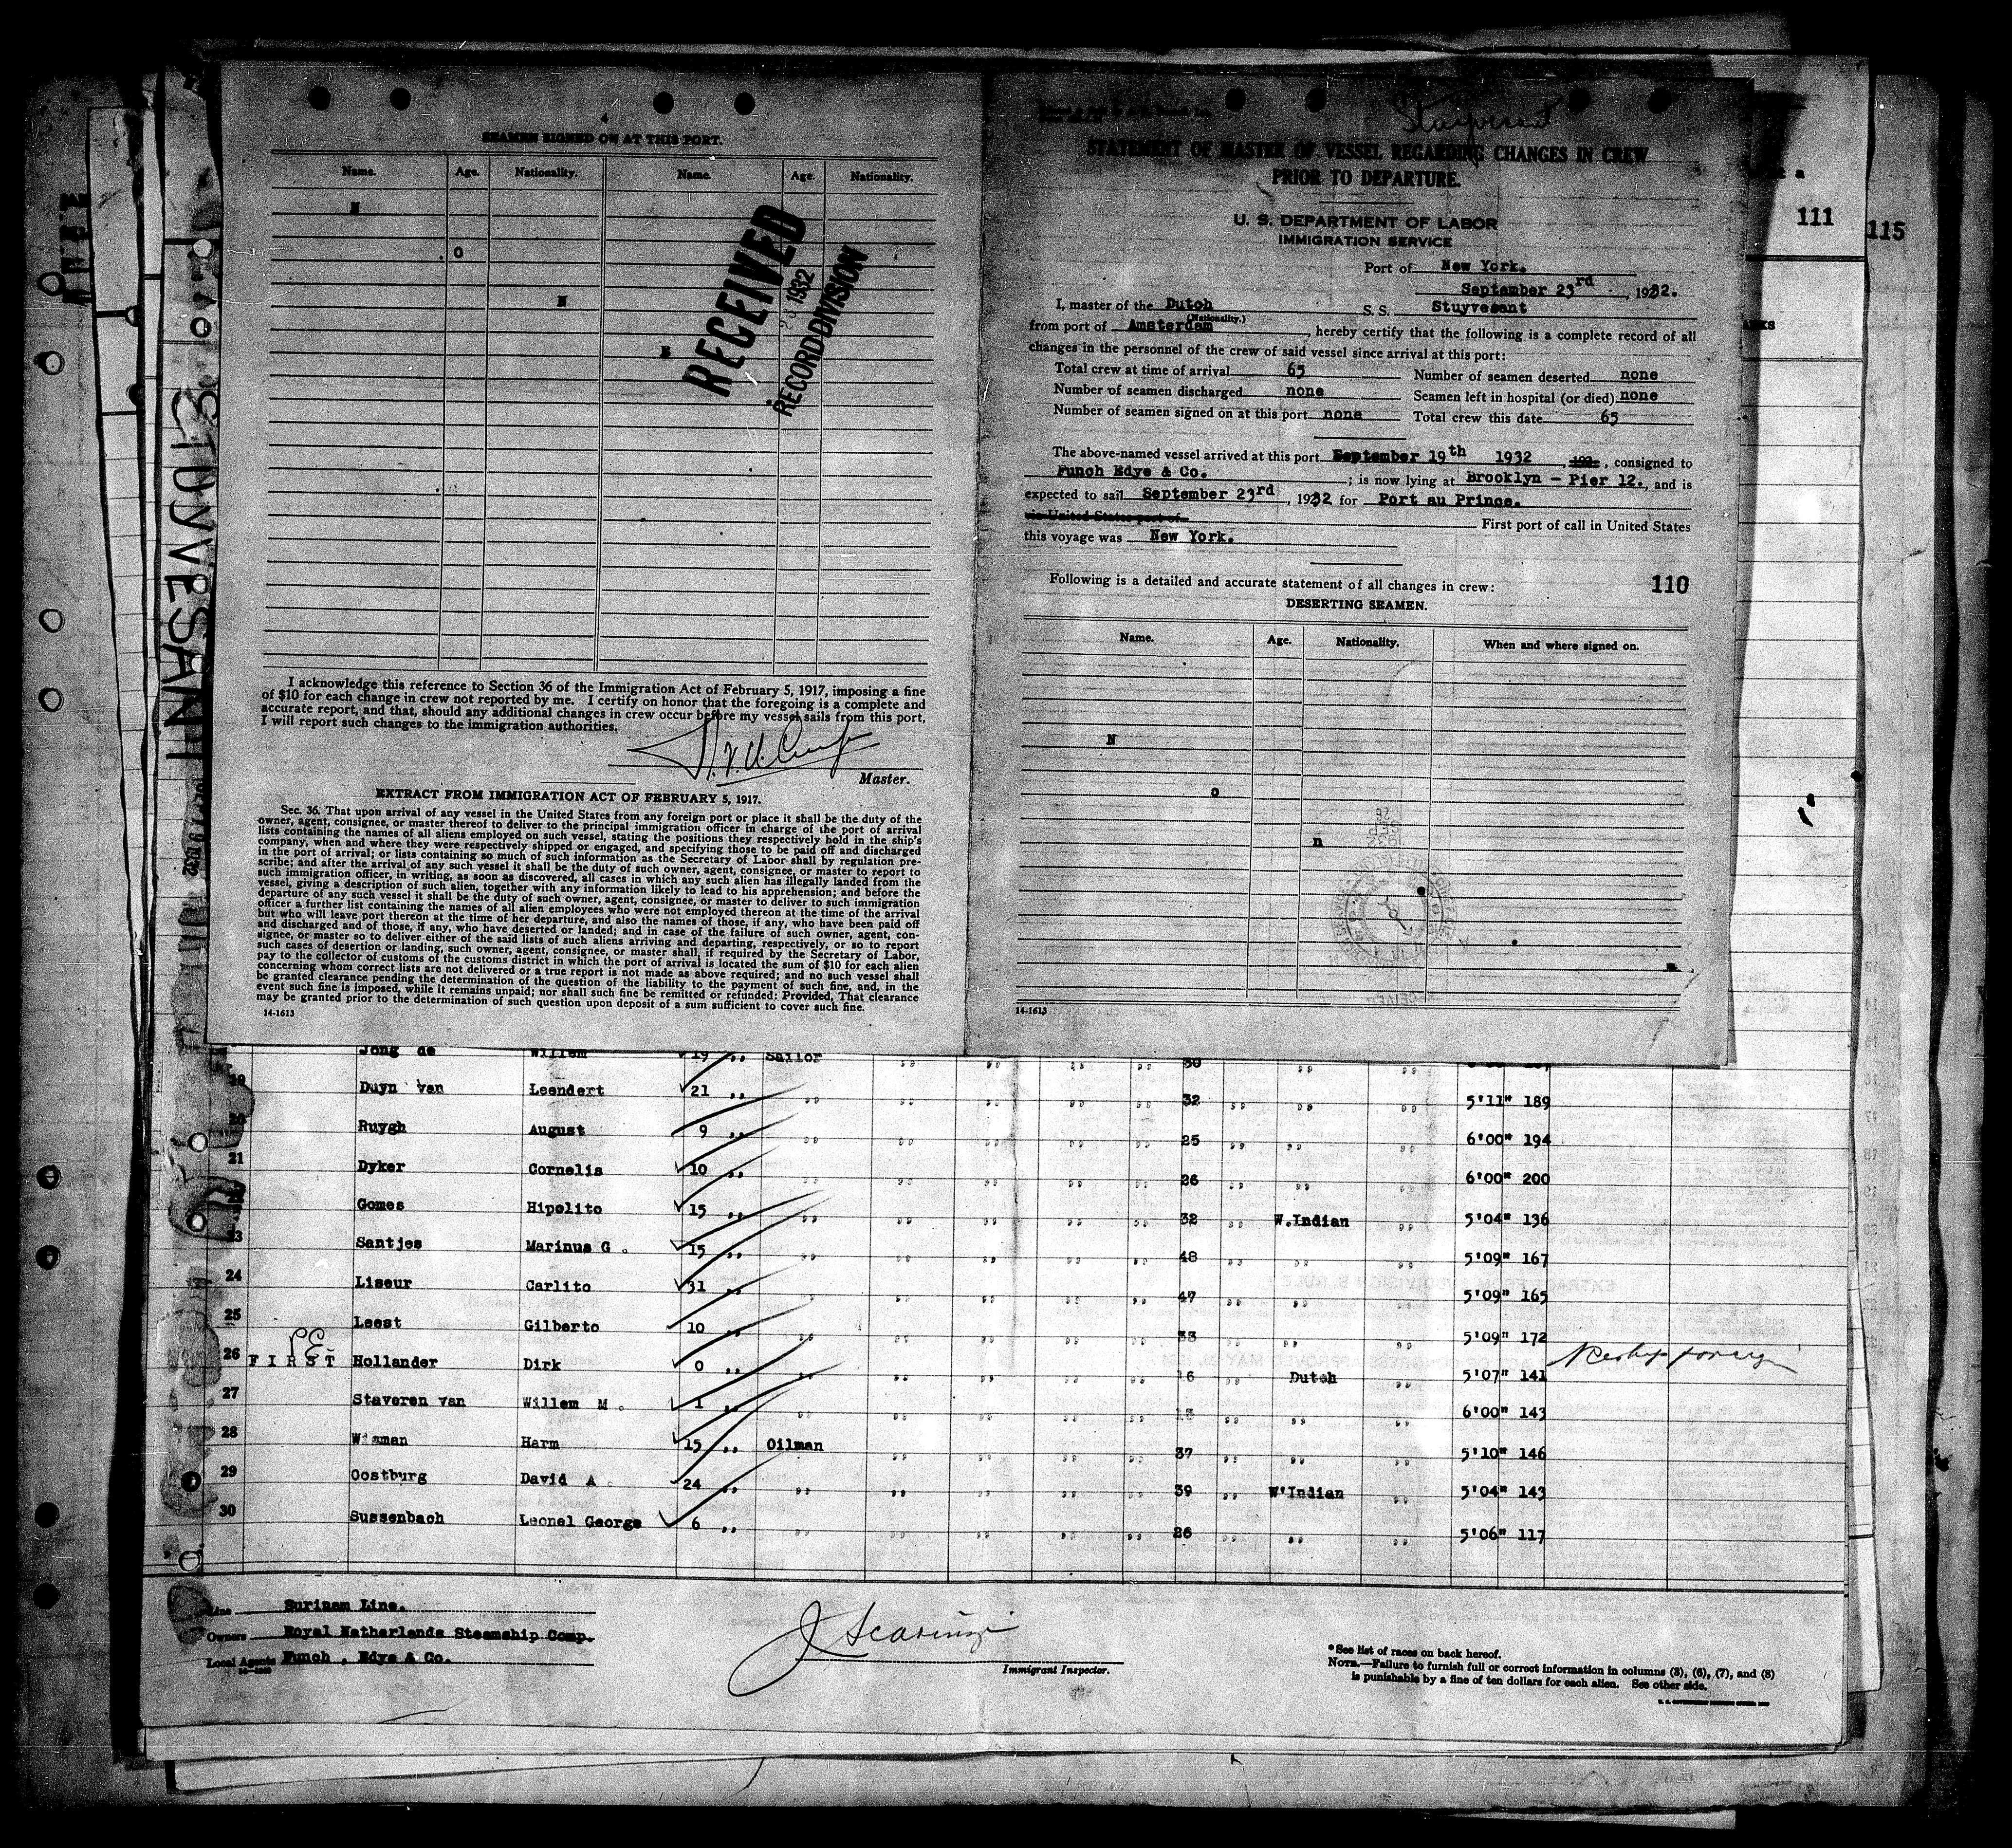 SEAMEN SIGNED ON AT THIS PORT.
Name. Age. Nationality. Name. Age. Nationality.
N
O
N
E
RECEIVED
1932
RECORD DIVISION
I acknowledge this reference to Section 36 of the Immigration Act of February 5, 1917, imposing a fine
of $10 for each change in crew not reported by me. I certify on honor that the foregoing is a complete and
accurate report, and that, should any additional changes in crew occur before my vessel sails from this port,
I will report such changes to the immigration authorities.
Master.
EXTRACT FROM IMMIGRATION ACT OF FEBRUARY 5, 1917.
Sec. 36. That upon arrival of any vessel in the United States from any foreign port or place it shall be the duty of the
owner, agent, consignee, or master thereof to deliver to the principal immigration officer in charge of the port of arrival
lists containing the names of all aliens employed on such vessel, stating the positions they respectively hold in the ship's
company, when and where they were respectively shipped or engaged, and specifying those to be paid off and discharged
in the port of arrival; or lists containing so much of such information as the Secretary of Labor shall by regulation pre-
scribe; and after the arrival of any such vessel it shall be the duty of such owner, agent, consignee, or master to report to
such immigration officer, in writing, as soon as discovered, all cases in which any such alien has illegally landed from the
vessel, giving a description of such alien, together with any information likely to lead to his apprehension; and before the
departure of any such vessel it shall be the duty of such owner, agent, consignee, or master to deliver to such immigration
officer a further list containing the names of all alien employees who were not employed thereon at the time of the arrival
but who will leave port thereon at the time of her departure, and also the names of those, if any, who have been paid off
and discharged and of those, if any, who have deserted or landed; and in case of the failure of such owner, agent, con-
signee, or master so to deliver either of the said lists of such aliens arriving and departing, respectively, or so to report
such cases of desertion or landing, such owner, agent, consignee, or master shall, if required by the Secretary of Labor,
pay to the collector of customs of the customs district in which the port of arrival is located the sum of $10 for each alien
concerning whom correct lists are not delivered or a true report is not made as above required; and no such vessel shall
be granted clearance pending the determination of the question of the liability to the payment of such fine, and, in the
event such fine is imposed, while it remains unpaid; nor shall such fine be remitted or refunded: Provided, That clearance
may be granted prior to the determination of such question upon deposit of a sum sufficient to cover such fine.
14-1613
STUYVESANT
Stuyvesant
STATEMENT OF MASTER OF VESSEL REGARDING CHANGES IN CREW
PRIOR TO DEPARTURE.
U. S. DEPARTMENT OF LABOR
IMMIGRATION SERVICE
Port of New York.
September 23rd, 1932.
I, master of the Dutch S. S. Stuyvesant
(Nationality.)
from port of Amsterdam, hereby certify that the following is a complete record of all
changes in the personnel of the crew of said vessel since arrival at this port:
Total crew at time of arrival 65 Number of seamen deserted none
Number of seamen discharged none Seamen left in hospital (or died) none
Number of seamen signed on at this port none Total crew this date 65
The above-named vessel arrived at this port September 19th 1932, 192 , consigned to
Funch Edye & Co. ; is now lying at Brooklyn - Pier 12., and is
expected to sail September 23rd, 1932 for Port au Prince.
via United States port of First port of call in United States
this voyage was New York.
Following is a detailed and accurate statement of all changes in crew: 110
DESERTING SEAMEN.
Name. Age. Nationality. When and where signed on.
N
o
n
14-1613
111
115
Jong de Willem 19 ,, Sailor ,, ,, ,, ,, 30 ,, ,,
19 Duyn van Leendert 21 ,, ,, ,, ,, ,, ,, 32 ,, ,, ,, 5'11" 189
20 Ruygh August 9 ,, ,, ,, ,, ,, ,, 25 ,, ,, ,, 6'00" 194
21 Dyker Cornelis 10 ,, ,, ,, ,, ,, ,, 26 ,, ,, ,, 6'00" 200
22 Gomes Hipolito 15 ,, ,, ,, ,, ,, ,, 32 ,, W.Indian ,, 5'04" 136
23 Santjes Marinus G. 15 ,, ,, ,, ,, ,, ,, 48 ,, ,, ,, 5'09" 167
24 Liseur Carlito 31 ,, ,, ,, ,, ,, ,, 47 ,, ,, ,, 5'09" 165
25 Leest Gilberto 10 ,, ,, ,, ,, ,, ,, 33 ,, ,, ,, 5'09" 172
26 FIRST Hollander Dirk 0 ,, ,, ,, ,, ,, ,, 16 ,, Dutch ,, 5'07" 141
27 Staveren van Willem M. 1 ,, ,, ,, ,, ,, ,, ,, ,, ,, 6'00" 143
28 Wisman Harm 15 ,, Oilman ,, ,, ,, ,, 37 ,, ,, ,, 5'10" 146
29 Oostburg David A. 24 ,, ,, ,, ,, ,, ,, 39 ,, W'Indian ,, 5'04" 143
30 Sussenbach Leonel George 6 ,, ,, ,, ,, ,, ,, 26 ,, ,, ,, 5'06" 117
Line Surinam Line.
Owners Royal Netherlands Steamship Comp.
Local Agents Funch, Edye & Co.
Immigrant Inspector.
*See list of races on back hereof.
NOTE.—Failure to furnish full or correct information in columns (3), (6), (7), and (8)
is punishable by a fine of ten dollars for each alien. See other side.